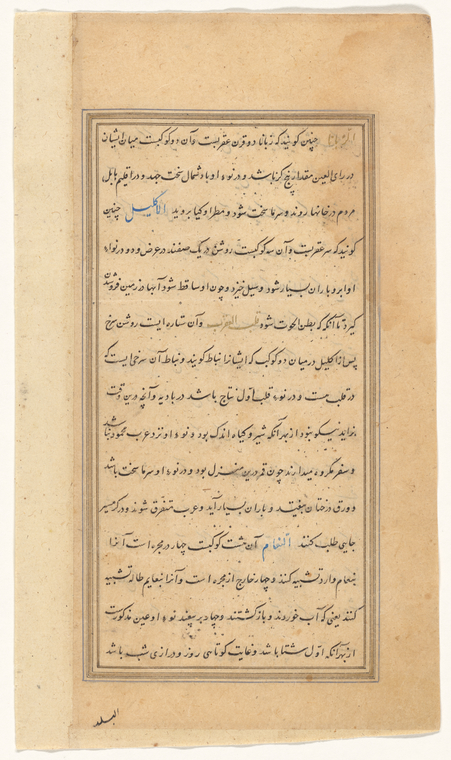 الزبانا چنین گویند که زبانا دو قرن عقربست و آن دو کوکبست میان ایشان
در رای العین مقدار پنج گز باشد و در نوء او باد شمال سخت جهد و در اقلیم بابل
مردم در خانها روند و سرما سخت شود و مطر او کیا بروید الاکلیل چنین
گویند که سر عقربست و آن سه کوکبست روشن در یک صف‌اند در عرض و در نواه
او ابر و باران بسیار شود و سیل خیزد و چون او ساقط شود آبها در زمین فروشدن
گیرد تا آنکه که بطن الحوت شود قلب العقرب و آن ستاره ایست روشن سرخ
پس از اکلیل در میان دو کوکب که ایشانرا نیاط گویند و نیاط آن سرخی ایست که
در قلب است و در نوء قلب اول نتاج باشد در بادیه و آنچه درین وقت
بزاید نیکو نبود از بهر آنکه شیر و کیاه اندک بود و نوء او نزد عرب محمود نباشد
و سفر مکروه میدارند چون قمر درین منزل بود و در نوء او سرما سخت باشد
و ورق درختان بیفتد و باران بسیار آید و عرب متفرق شوند و در گرمسیر
جایی طلب کنند النعایم آن هشت کوکبست چهار در مجره است آنرا
بنعام وارد تشبیه کنند و چهار خارج از مجره است و آنرا بنعایم طاله تشبیه
کنند یعنی که آب خوردند و بازگشتند و چهار بر پیغند نوء او عین مذکورست
از بهر آنکه اول شتا باشد و غایت کوتاهی روز و درازی شب باشد
البلد